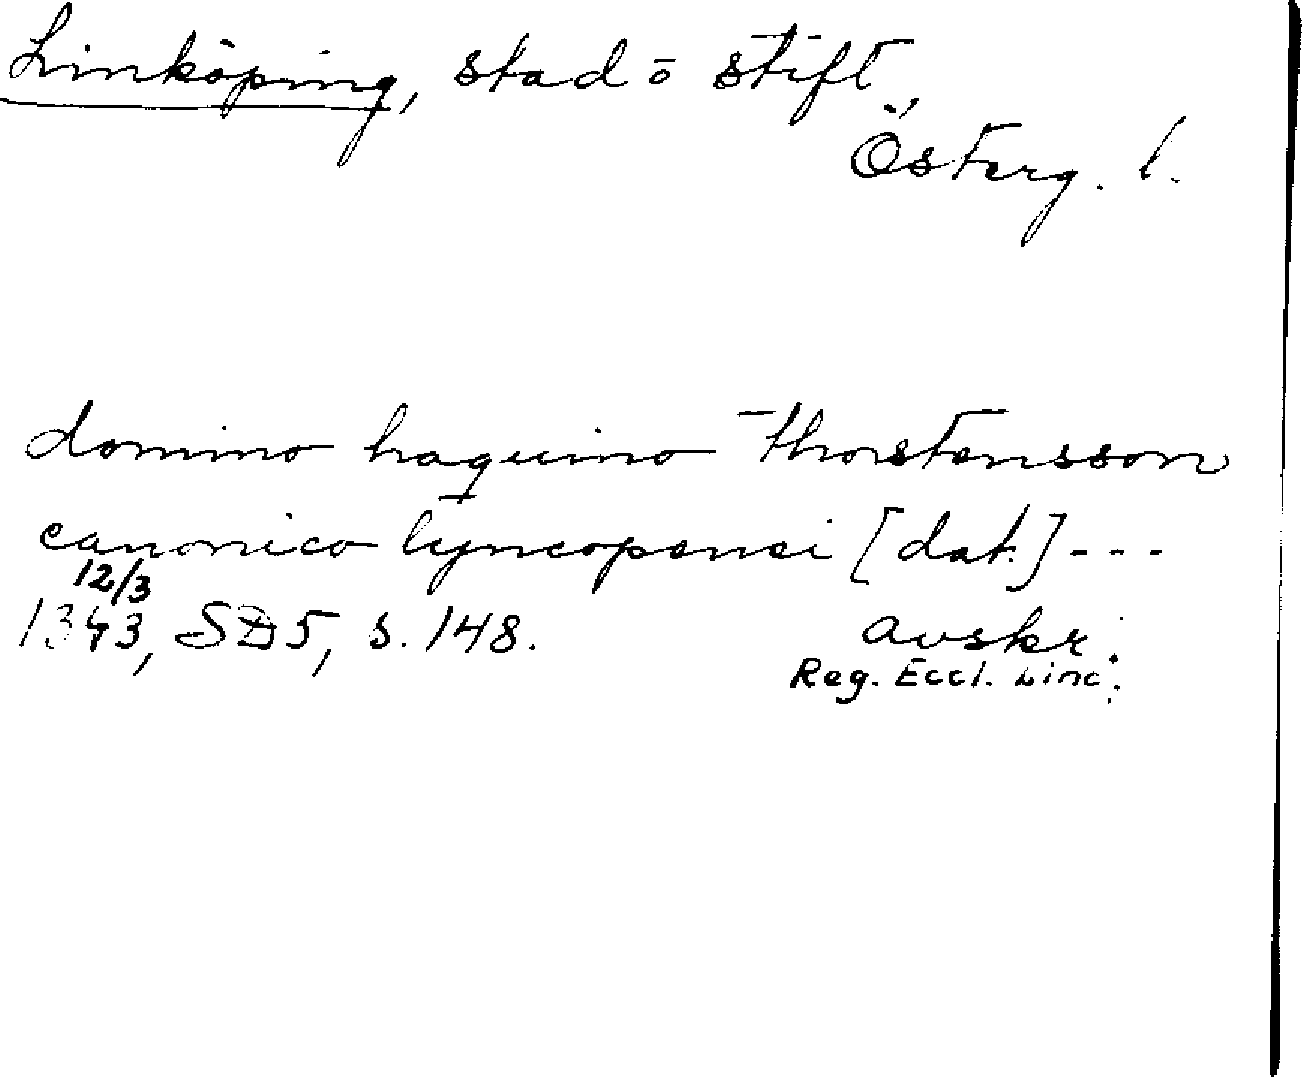 Linköping, stad o stift,
Österg. l.
domino haquino Thorstensson
canonico lyncopensi [dat.] - - -
12/3
1343, SD 5, s. 148. avskr.
Reg. Eccl. Linc.